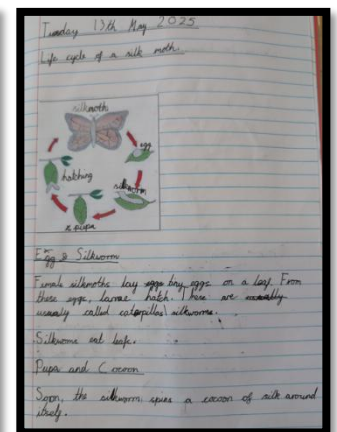 Tuesday 13th May 2025
Life cycle of a silk moth.
silkmoths
egg
silkworm
pupa
hatching
Egg & Silkworm
Female silkmoths lay eggs tiny eggs on a leaf. From
these eggs, larvae hatch. These are usually
usually called caterpillas\silkworms.
Silkworms eat leafs.
Pupa and Cocoon
Soon, the silkworm spins a cocoon of silk around
itself.